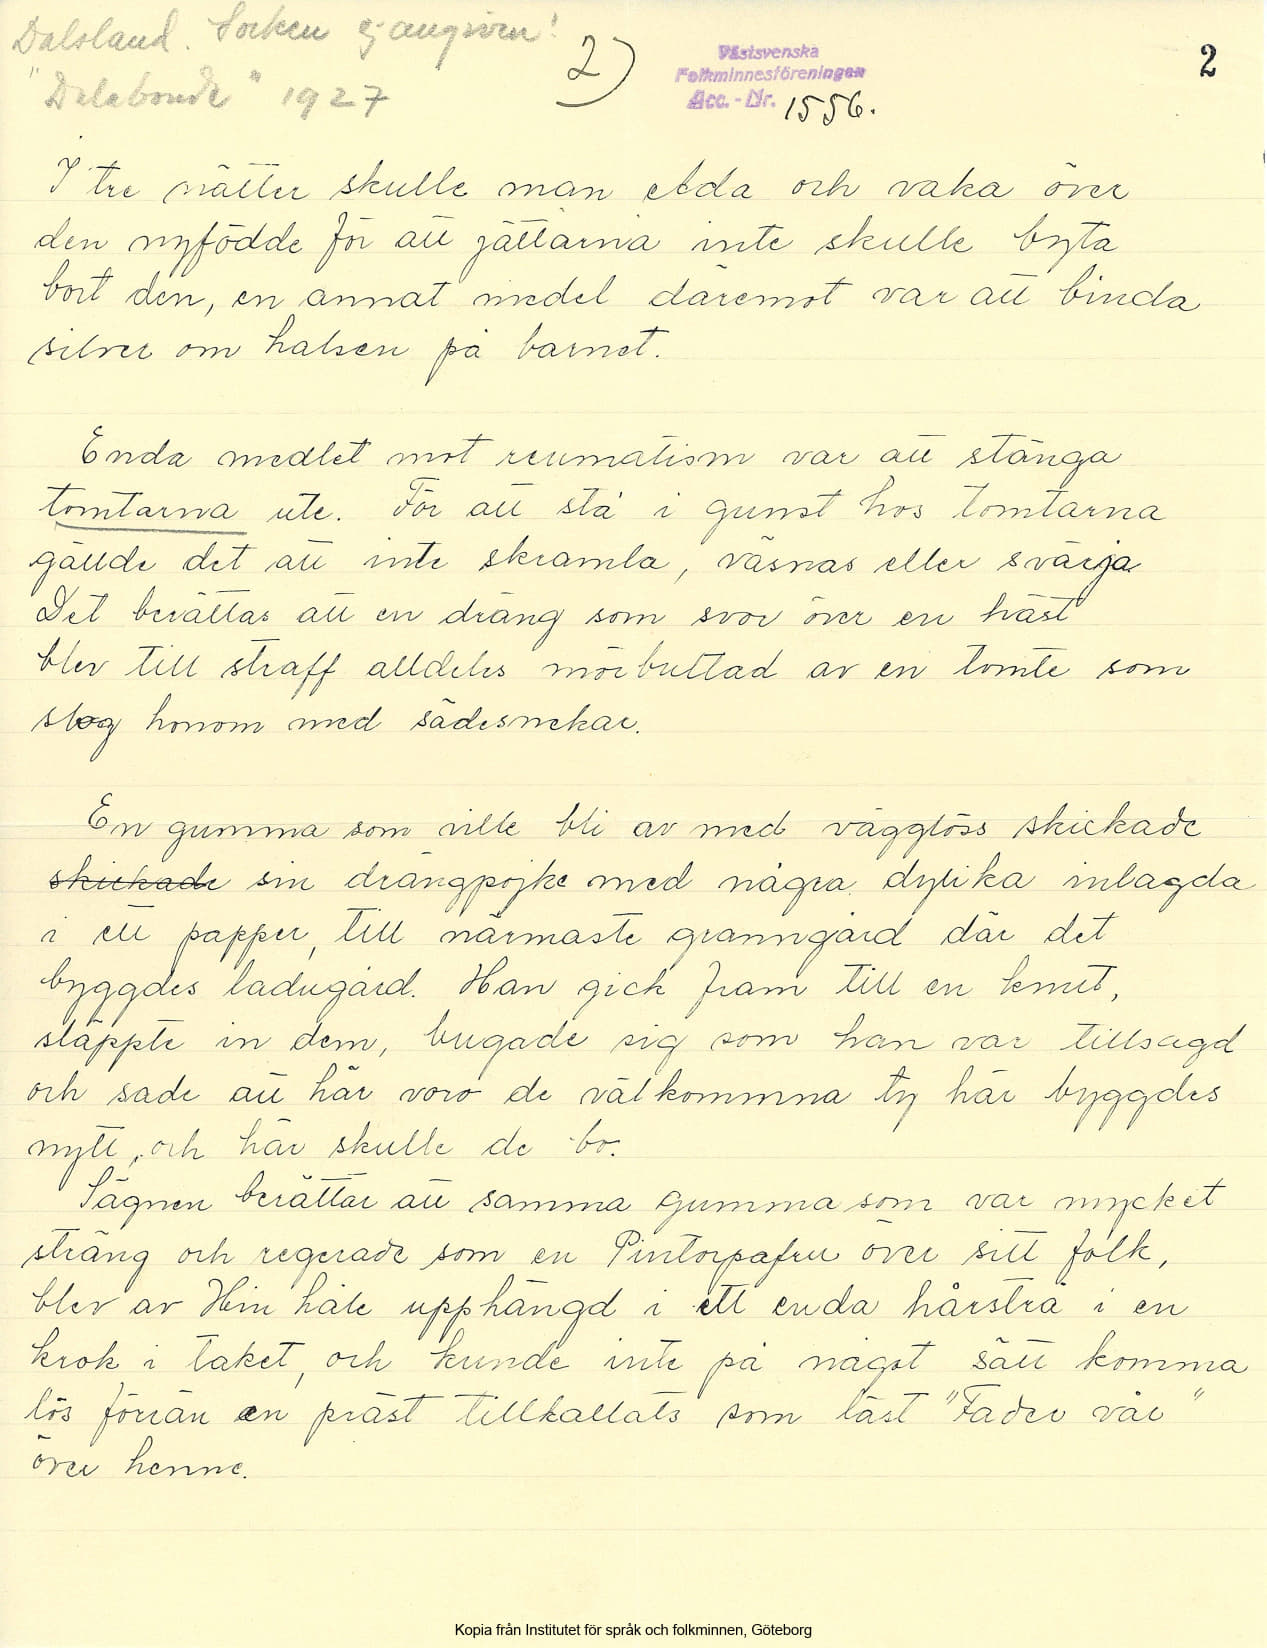 Dalsland. Socken ej angiven!
"Dalabonde" 1927
2)
Västsvenska
Folkminnesföreningen
Acc. - Nr. 1556.
2
I tre nätter skulle man elda och vaka över
den nyfödde för att jättarna inte skulle byta
bort den, en annat medel däremot var att binda
silver om halsen på barnet.
Enda medlet mot reumatism var att stänga
tomtarna ute. För att stå i gunst hos tomtarna
gällde det att inte skramla, väsnas eller svärja
Det berättas att en dräng som svor över en häst
blev till straff alldeles mörbultad av en tomte som
slog honom med sädesnekar.
En gumma som ville bli av med vägglöss skickade
skickade sin drängpojke med några dylika inlagda
i ett papper, till närmaste granngård där det
byggdes ladugård. Han gick fram till en knut,
släppte in dem, bugade sig som han var tillsagd
och sade att här voro de välkommna ty här byggdes
nytt, och här skulle de bo.
Sägnen berättar att samma gumma som var mycket
sträng och regerade som en Pintorpafru över sitt folk,
blev av Hin håle upphängd i ett enda hårstrå i en
krok i taket, och kunde inte på något sätt komma
lös förrän en präst tillkallats som läst "Fader vår"
över henne.
Kopia från Institutet för språk och folkminnen, Göteborg